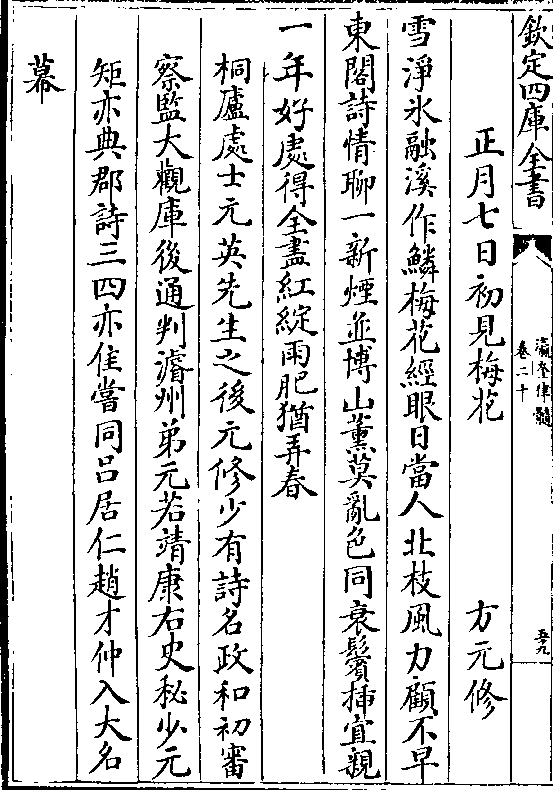 欽定四庫全書
瀛奎律髓
卷二十
五九
正月七日初見梅花　方元修
雪淨氷融溪作鱗梅花經眼日當人北枝風力顧不早
東閣詩情聊一新煙並博山薰莫亂色同衰鬢揷宜親
一年好處得全盡紅綻雨肥猶弄春
桐廬處士元英先生之後元修少有詩名政和初審
察監大觀庫後通判濬州弟元若靖康右史秘少元
矩亦典郡詩三四亦佳當同吕居仁趙才仲入大名
幕